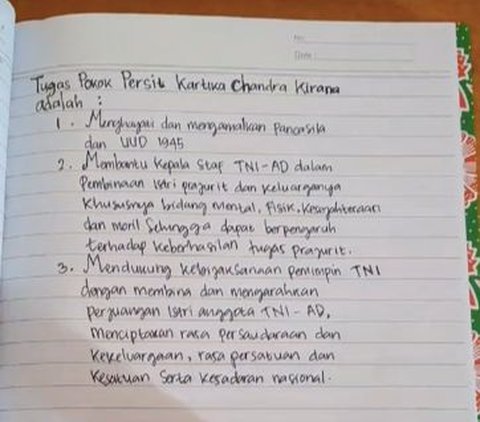 No:
Date:
Tugas Pokok Persit Kartika Chandra Kirana
adalah :
1. Menghayati dan mengamalkan Pancasila
dan UUD 1945
2. Membantu Kepala Staf TNI-AD dalam
Pembinaan Istri prajurit dan Keluarganya
Khususnya bidang mental, Fisik, Kesejahteraan
dan moril Sehingga dapat berpengaruh
terhadap Keberhasilan tugas prajurit.
3. Mendukung kebijaksanaan pemimpin TNI
dengan membina dan mengarahkan
perjuangan Istri anggota TNI-AD,
menciptakan rasa persaudaraan dan
Kekeluargaan, rasa persatuan dan
Kesatuan Serta Kesadaran nasional.